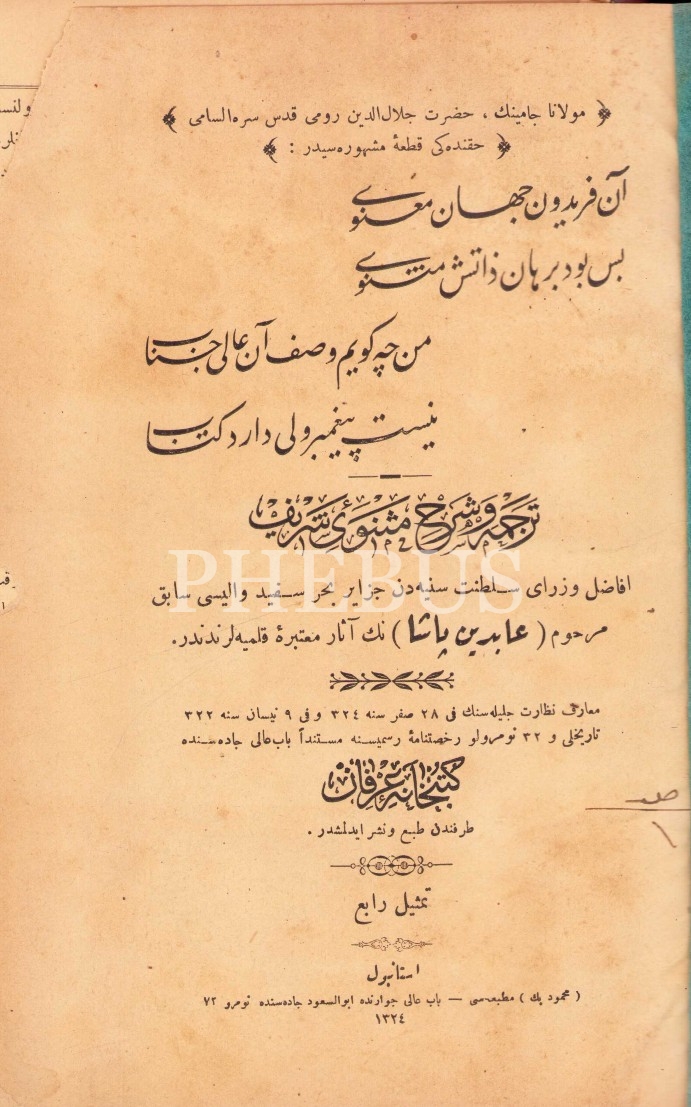 ﴿ مولانا جامينك ، حضرت جلال‌الدين رومی قدس سره‌السامی ﴾
﴿ حقنده‌كی قطعهٔ مشهوره‌سيدر : ﴾
آن فریدون جهان معنوی
بس بود برهان ذاتش مثنوی
من چه كويم وصف آن عالی جناب
نيست پيغمبر ولی دارد كتاب
ترجمه و شرح مثنویٔ شريف
PHEBUS
افاضل وزرای سلطنت سنيه‌دن جزاير بحر سفيد واليسی سابق
مرحوم ( عابدين پاشا ) نك آثار معتبرهٔ قلميه‌لرندندر.
معارف نظارت جليله‌سنك فی ٢٨ صفر سنه ٣٢٤ و فی ٩ نيسان سنه ٣٢٢
تاريخلی و ٣٢ نومرولو رخصتنامهٔ رسميسنه مستنداً باب‌عالی جاده‌سنده
كتبخانهٔ عرفان
طرفندن طبع ونشر ايدلمشدر .
تمثيل رابع
استانبول
( محمود بك ) مطبعه‌سی — باب عالی جوارنده ابوالسعود جاده‌سنده نومرو ٧٢
١٣٢٤